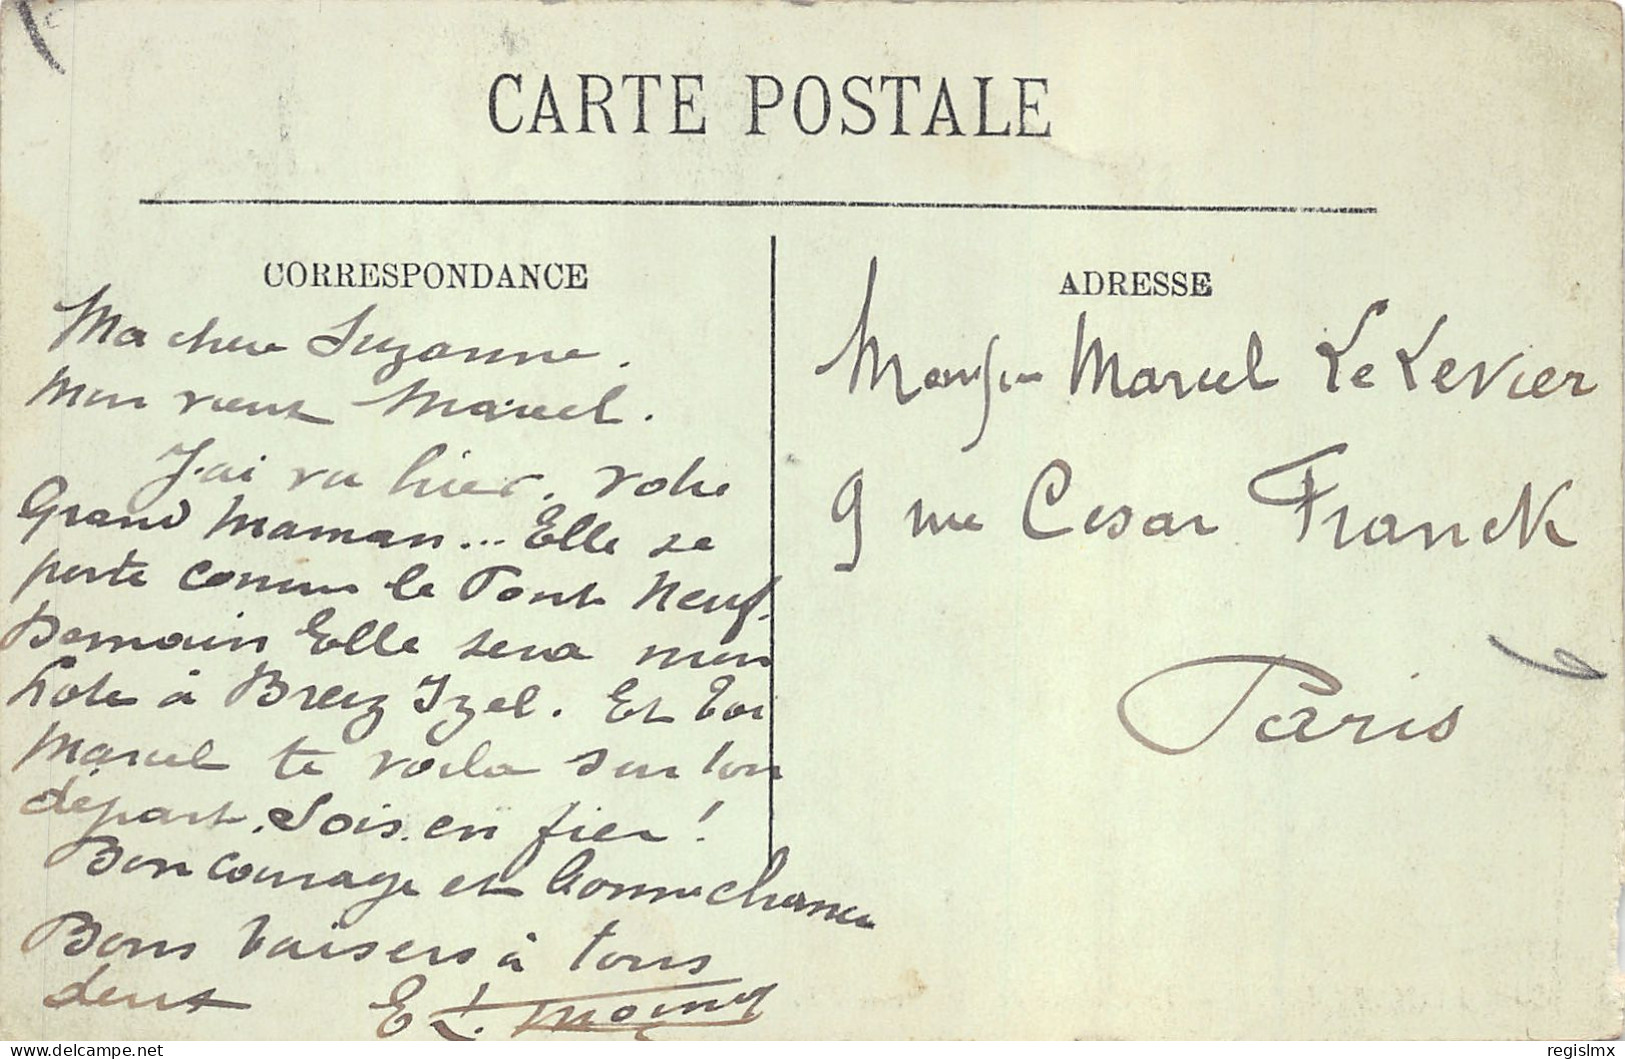 CARTE POSTALE
CORRESPONDANCE
Ma chere Suzanne.
Mon vieux Marcel.
J'ai vu hier. votre
Grand Maman... Elle se
porte comme le Pont Neuf.
Demain Elle sera mon
hote à Breiz Izel. Et toi
Marcel te voila sur ton
départ. Sois en fier!
Bon courage et bonne chance
Bons baisers à tous
deux E L.
ADRESSE
Monsieur Marcel Le Levier
9 rue Cesar Franck
Paris
delcampe.net
regislmx